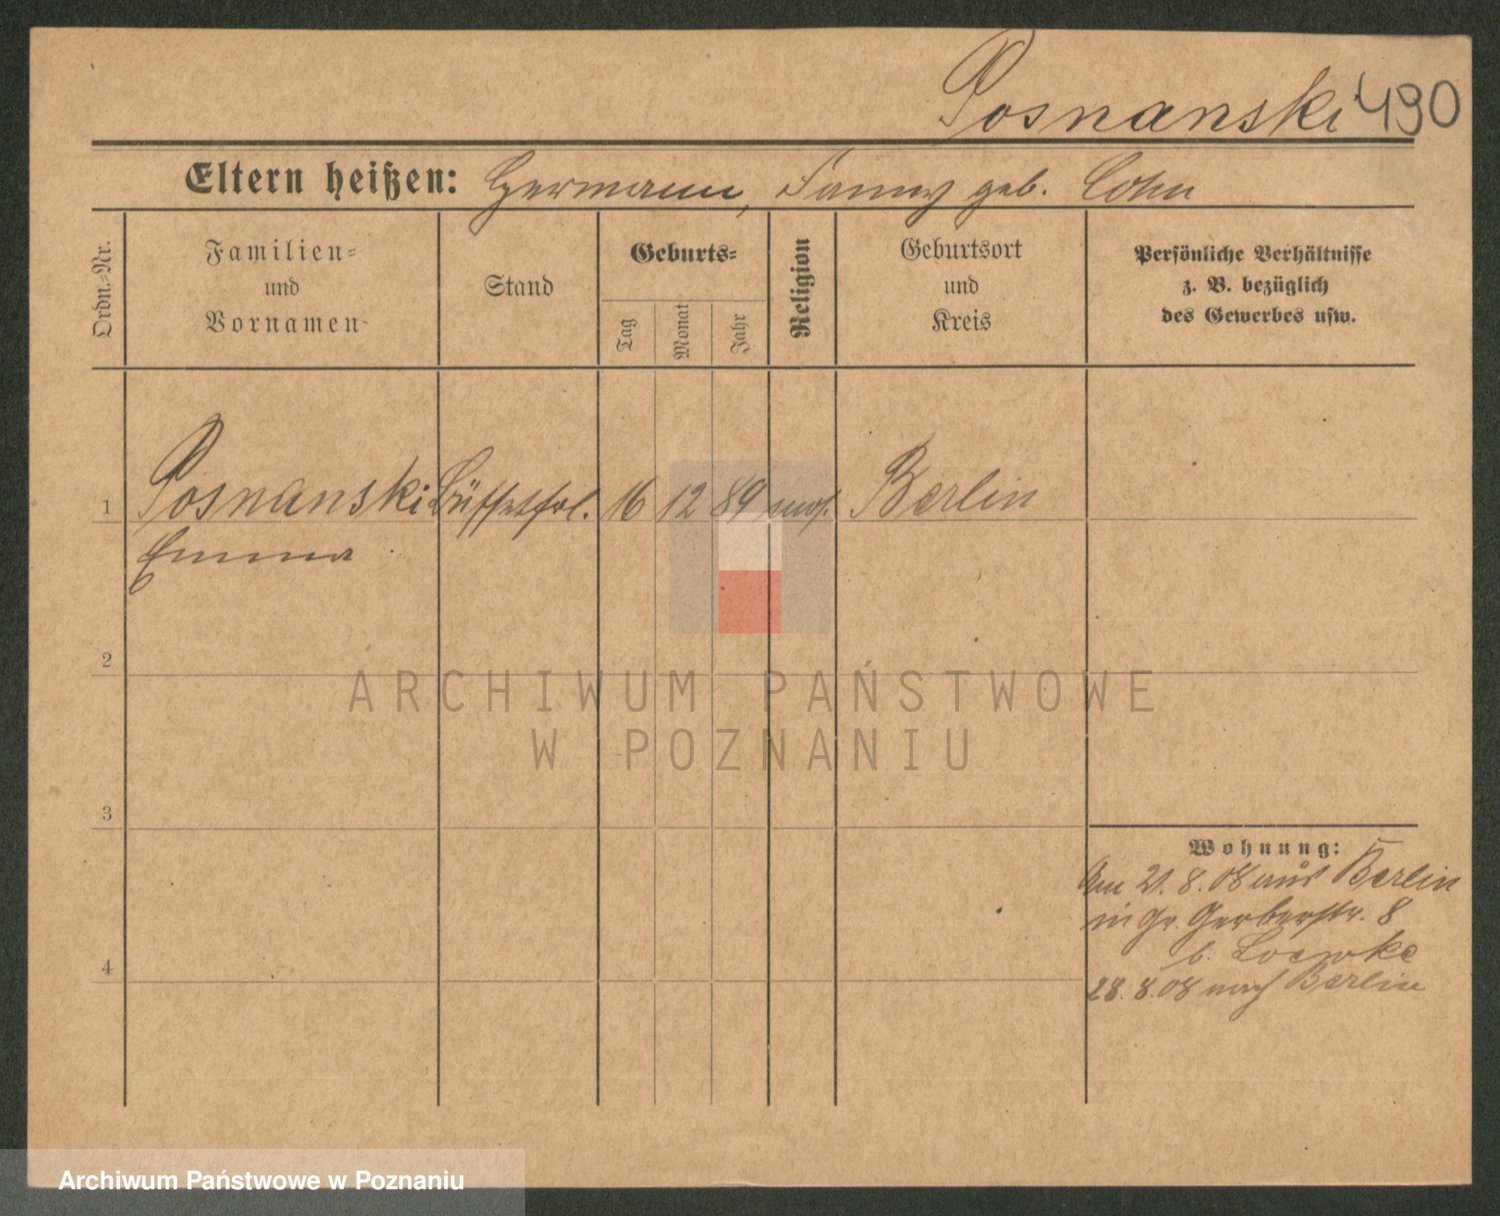 Posnanski 490
Eltern heißen: Hermann, Fanny geb. Cohn
Ordn.-Nr.
Familien-
und
Vornamen-
Stand
Geburts-
Tag
Monat
Jahr
Religion
Geburtsort
und
Kreis
Persönliche Verhältnisse
z. B. bezüglich
des Gewerbes usw.
1 Posnanski Büffetfrl. 16 12 89 mos. Berlin
Emma
2
3
4
Wohnung:
Am 21. 8. 08 aus Berlin
in Gr. Gerberstr. 8
b.
28. 8. 08 nach Berlin
ARCHIWUM PAŃSTWOWE
W POZNANIU
Archiwum Państwowe w Poznaniu